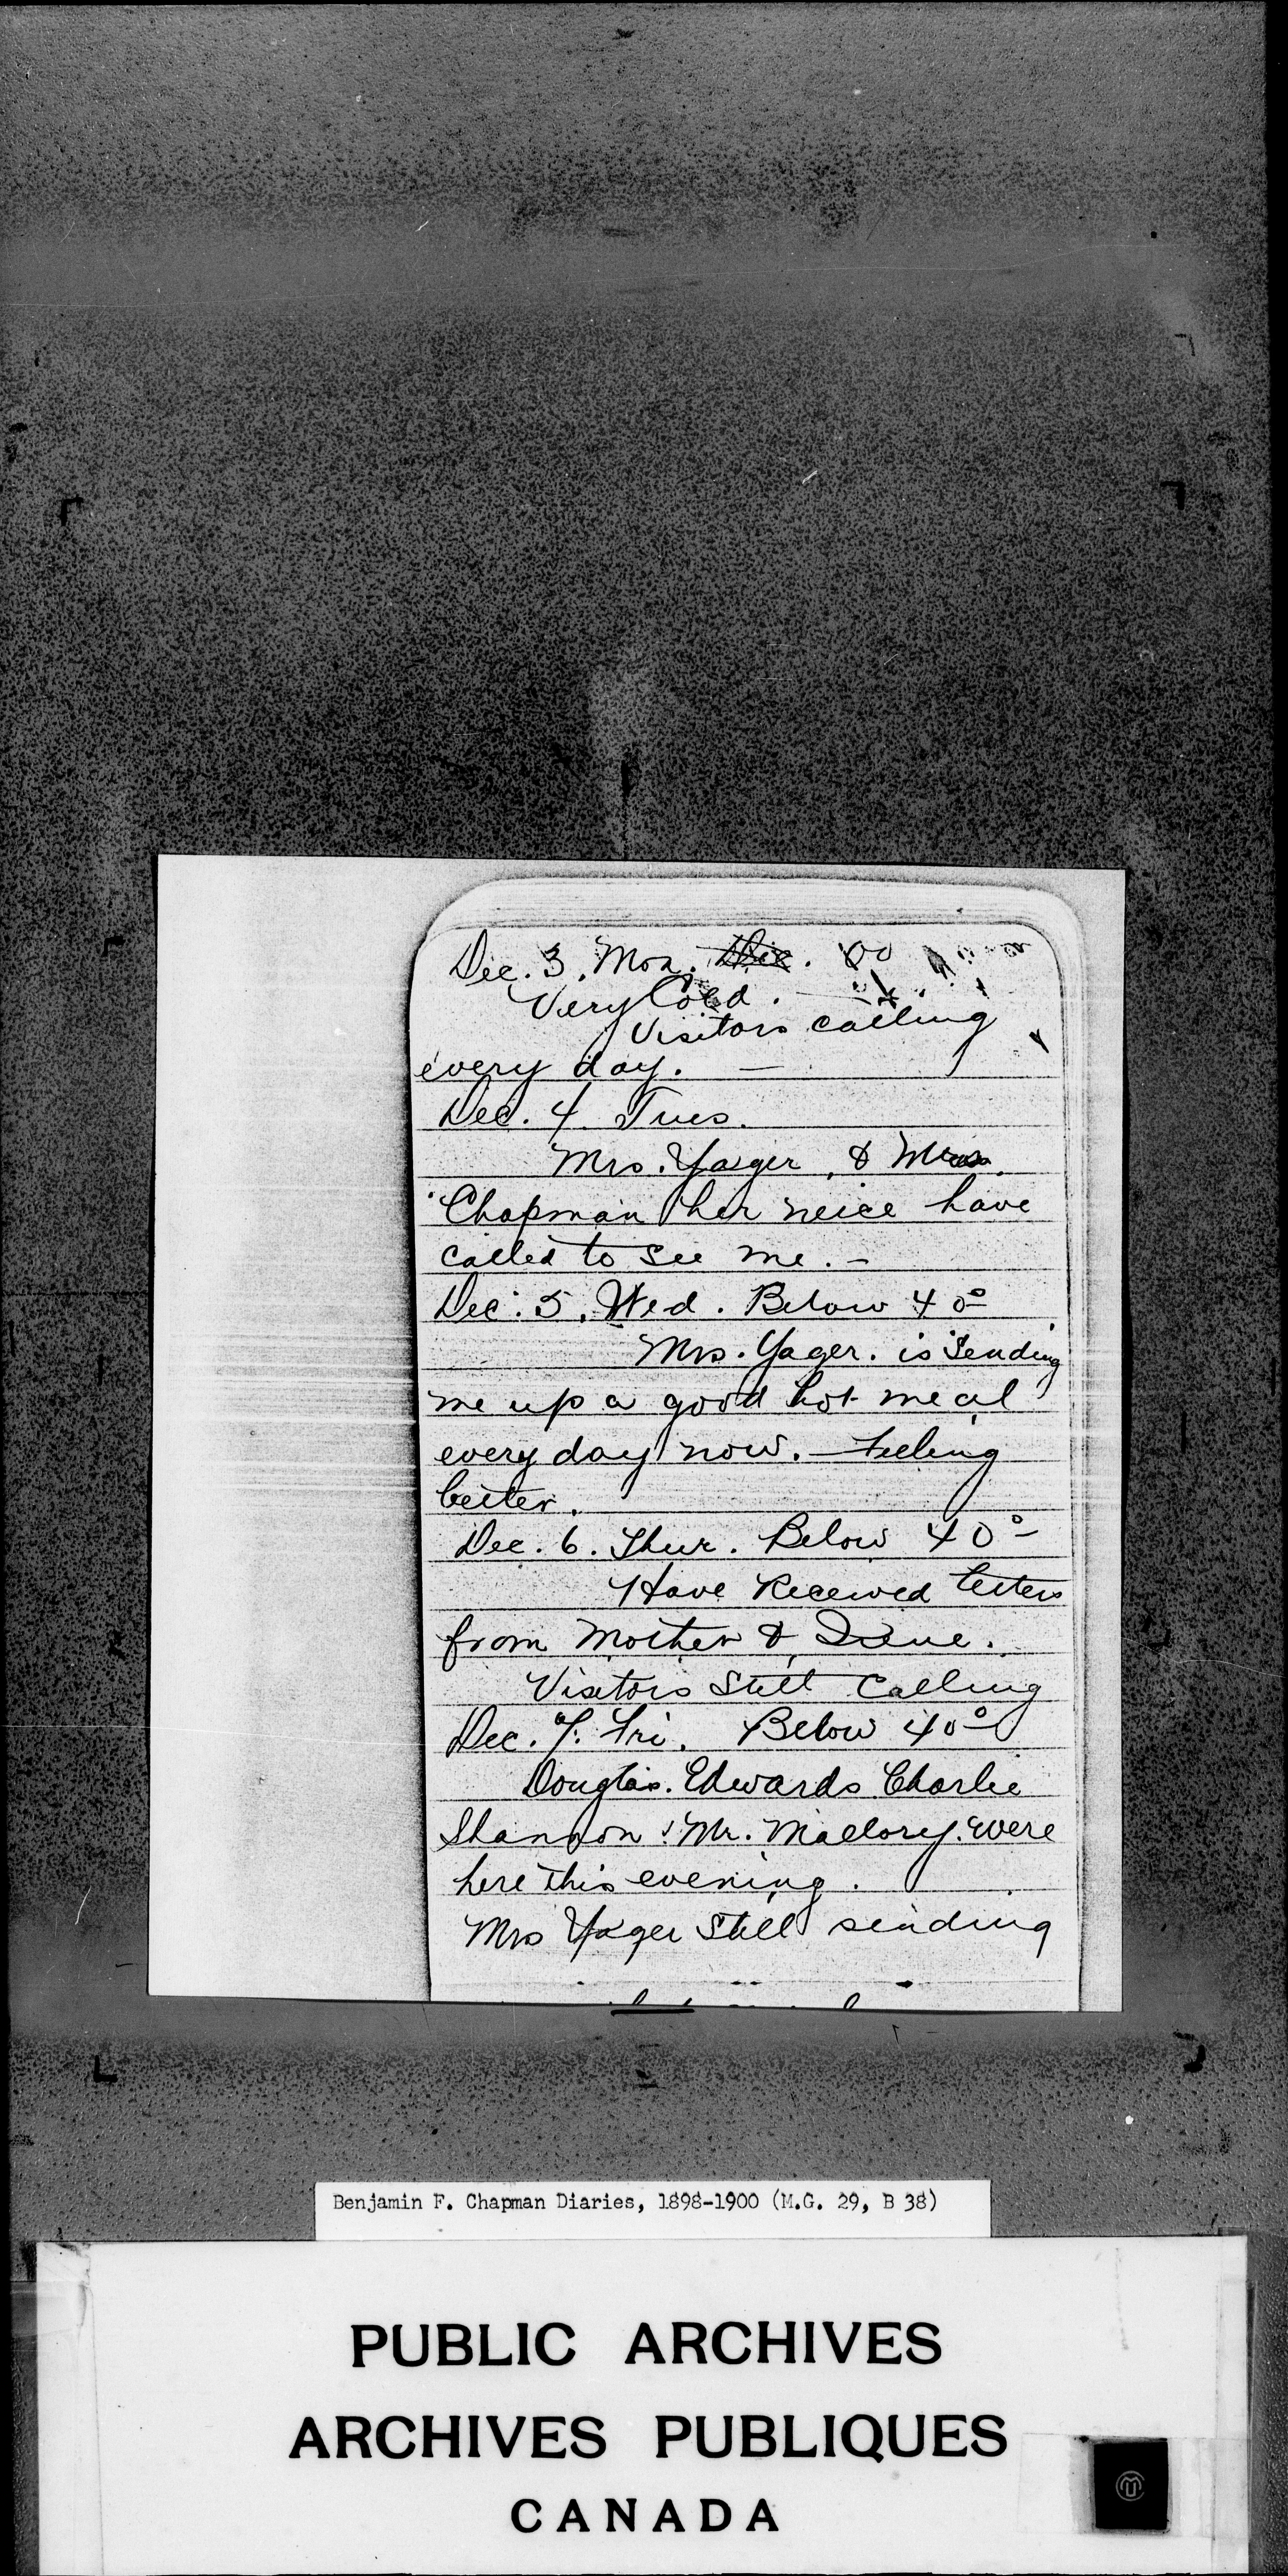 Dec. 3. Mon. 00
Very Cold.
Visitors calling
every day. —
Dec. 4. Tues.
Mrs. Yager, & Miss
Chapman her neice have
called to see me. –
Dec. 5. Wed. Below 40°
Mrs. Yager. is sending
me up a good hot meal
every day now. — Feeling
better.
Dec. 6. Thur. Below 40°
Have Received letters
from Mother &
Visitors Still Calling
Dec. 7. Fri. Below 40°
Douglas. Edwards Charlie
Shannon & Mr. Mallory. were
here this evening.
Mrs Yager Still sending
Benjamin F. Chapman Diaries, 1898-1900 (M.G. 29, B 38)
PUBLIC ARCHIVES
ARCHIVES PUBLIQUES
CANADA